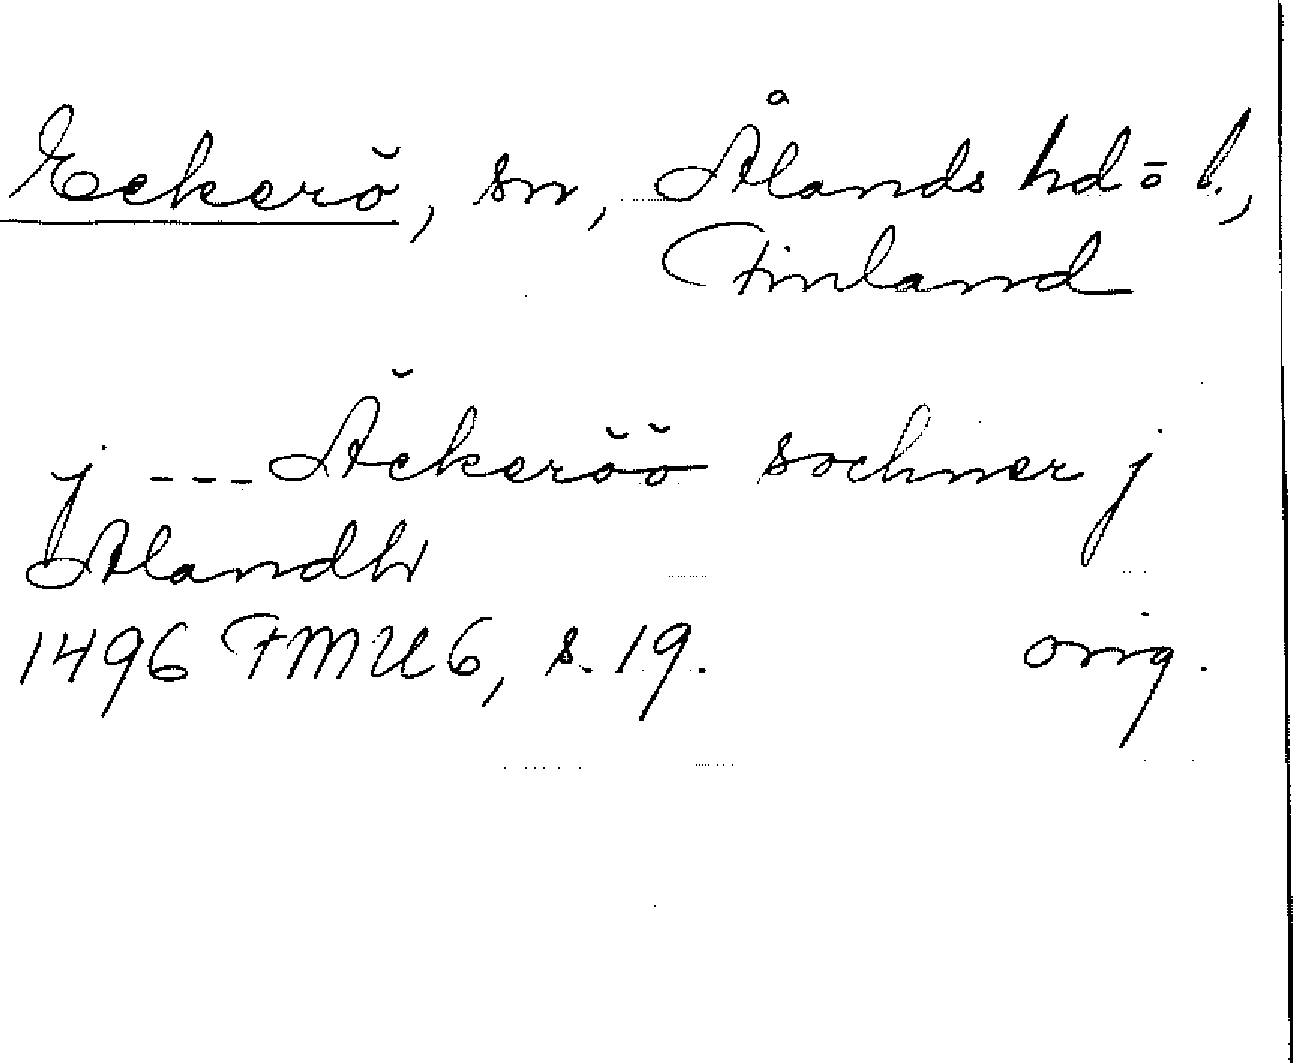 Eckerö, sn, Ålands hd o l.,
Finland
j --- Äckeröö sochner j
Alandh
1496 FMU 6, s. 19. orig.